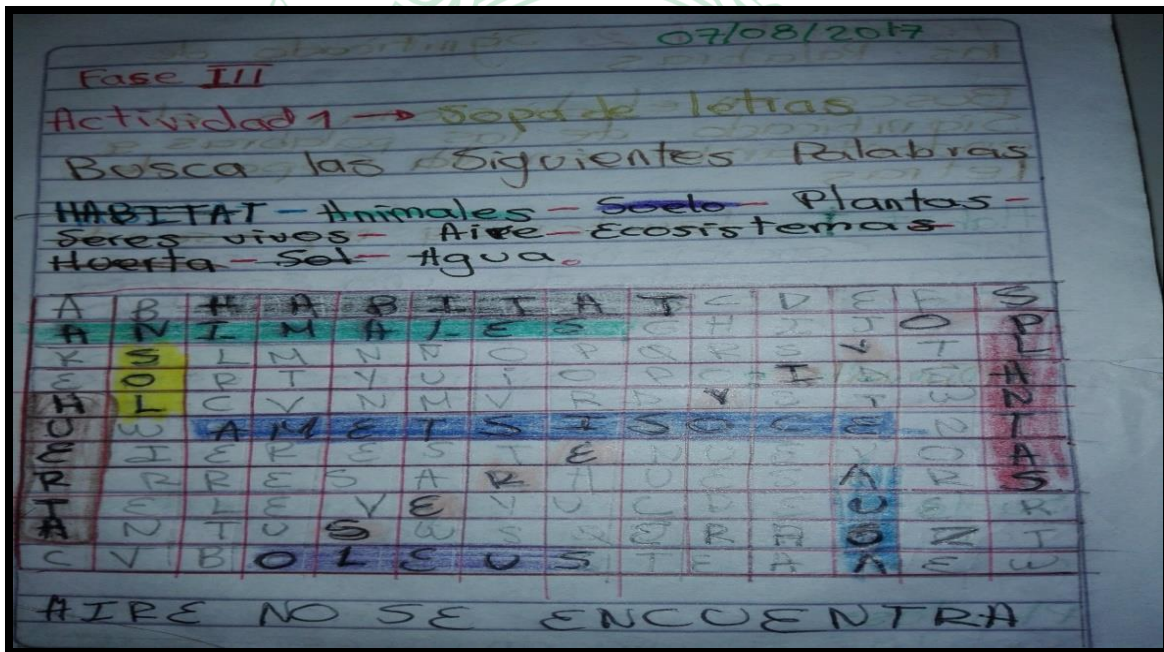 07/08/2017
Fase III
Actividad 1 → Sopa de letras
Busca las Siguientes Palabras
HABITAT - Animales - Suelo - Plantas -
Seres vivos - Aire - Ecosistemas
Huerta - Sol - Agua.
A B H A B I T A T C D E F S
A N I M A L E S C H I J O P
K S L M N Ñ O P Q R S V T L
E O R T Y U I O P I A
H L C V N M V Y N
U W A M E T S I S O C E N T
E I E R E S I E A
R R R E S A R A R S
T E L E V E V U C U K
A N T U S S R G Z I
C V B O L E U S T E A A E W
AIRE NO SE ENCUENTRA